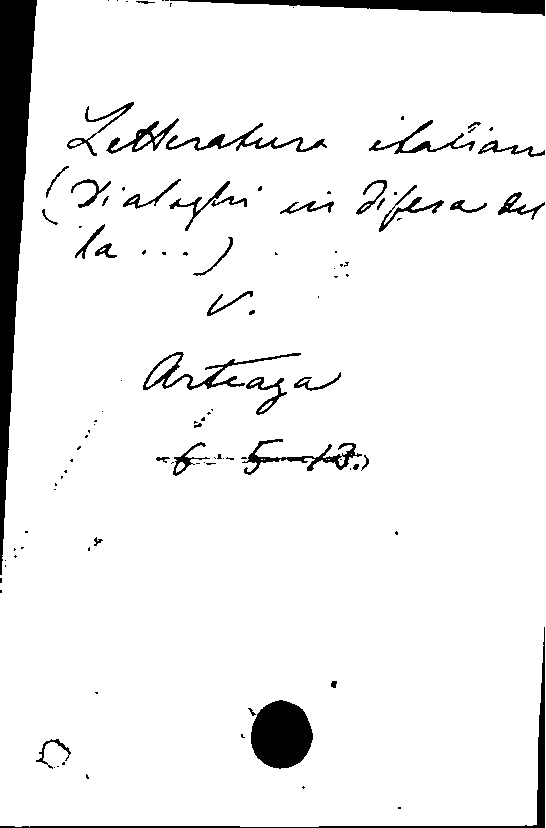 Letteratura italian
(Dialoghi in difesa del
la ...)
V.
Arteaga
6. 5